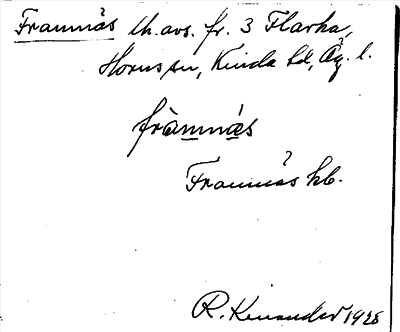 Framnäs lh. avs. fr. 3 Flarka,
Horns sn, Kinda hd, Ög. l.
fràmnä́s
Framnäs kb.
R. Kinander 1928